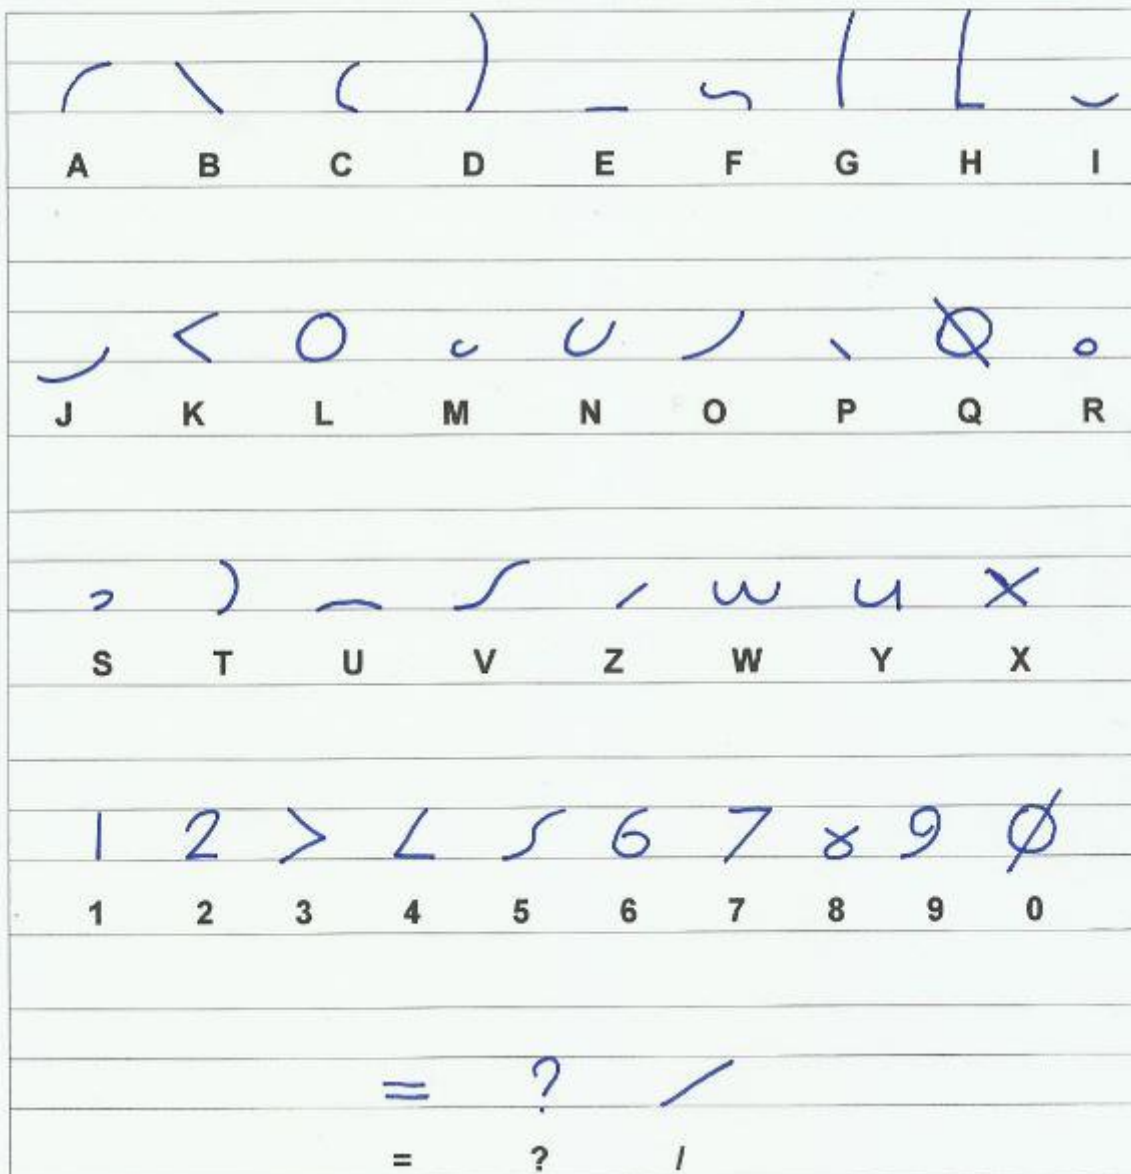 A B C D E F G H I
J K L M N O P Q R
S T U V Z W Y X
1 2 > L 5 6 7 8 9 0
1 2 3 4 5 6 7 8 9 0
= ? /
= ? /